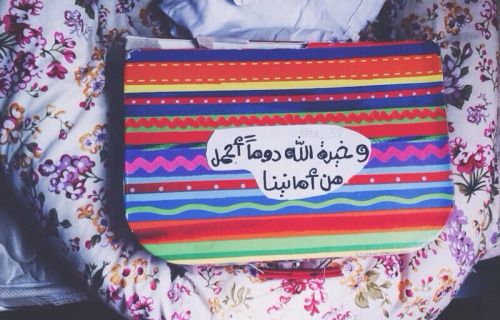 و خيرة الله دوماً أجمل
من أمانينا